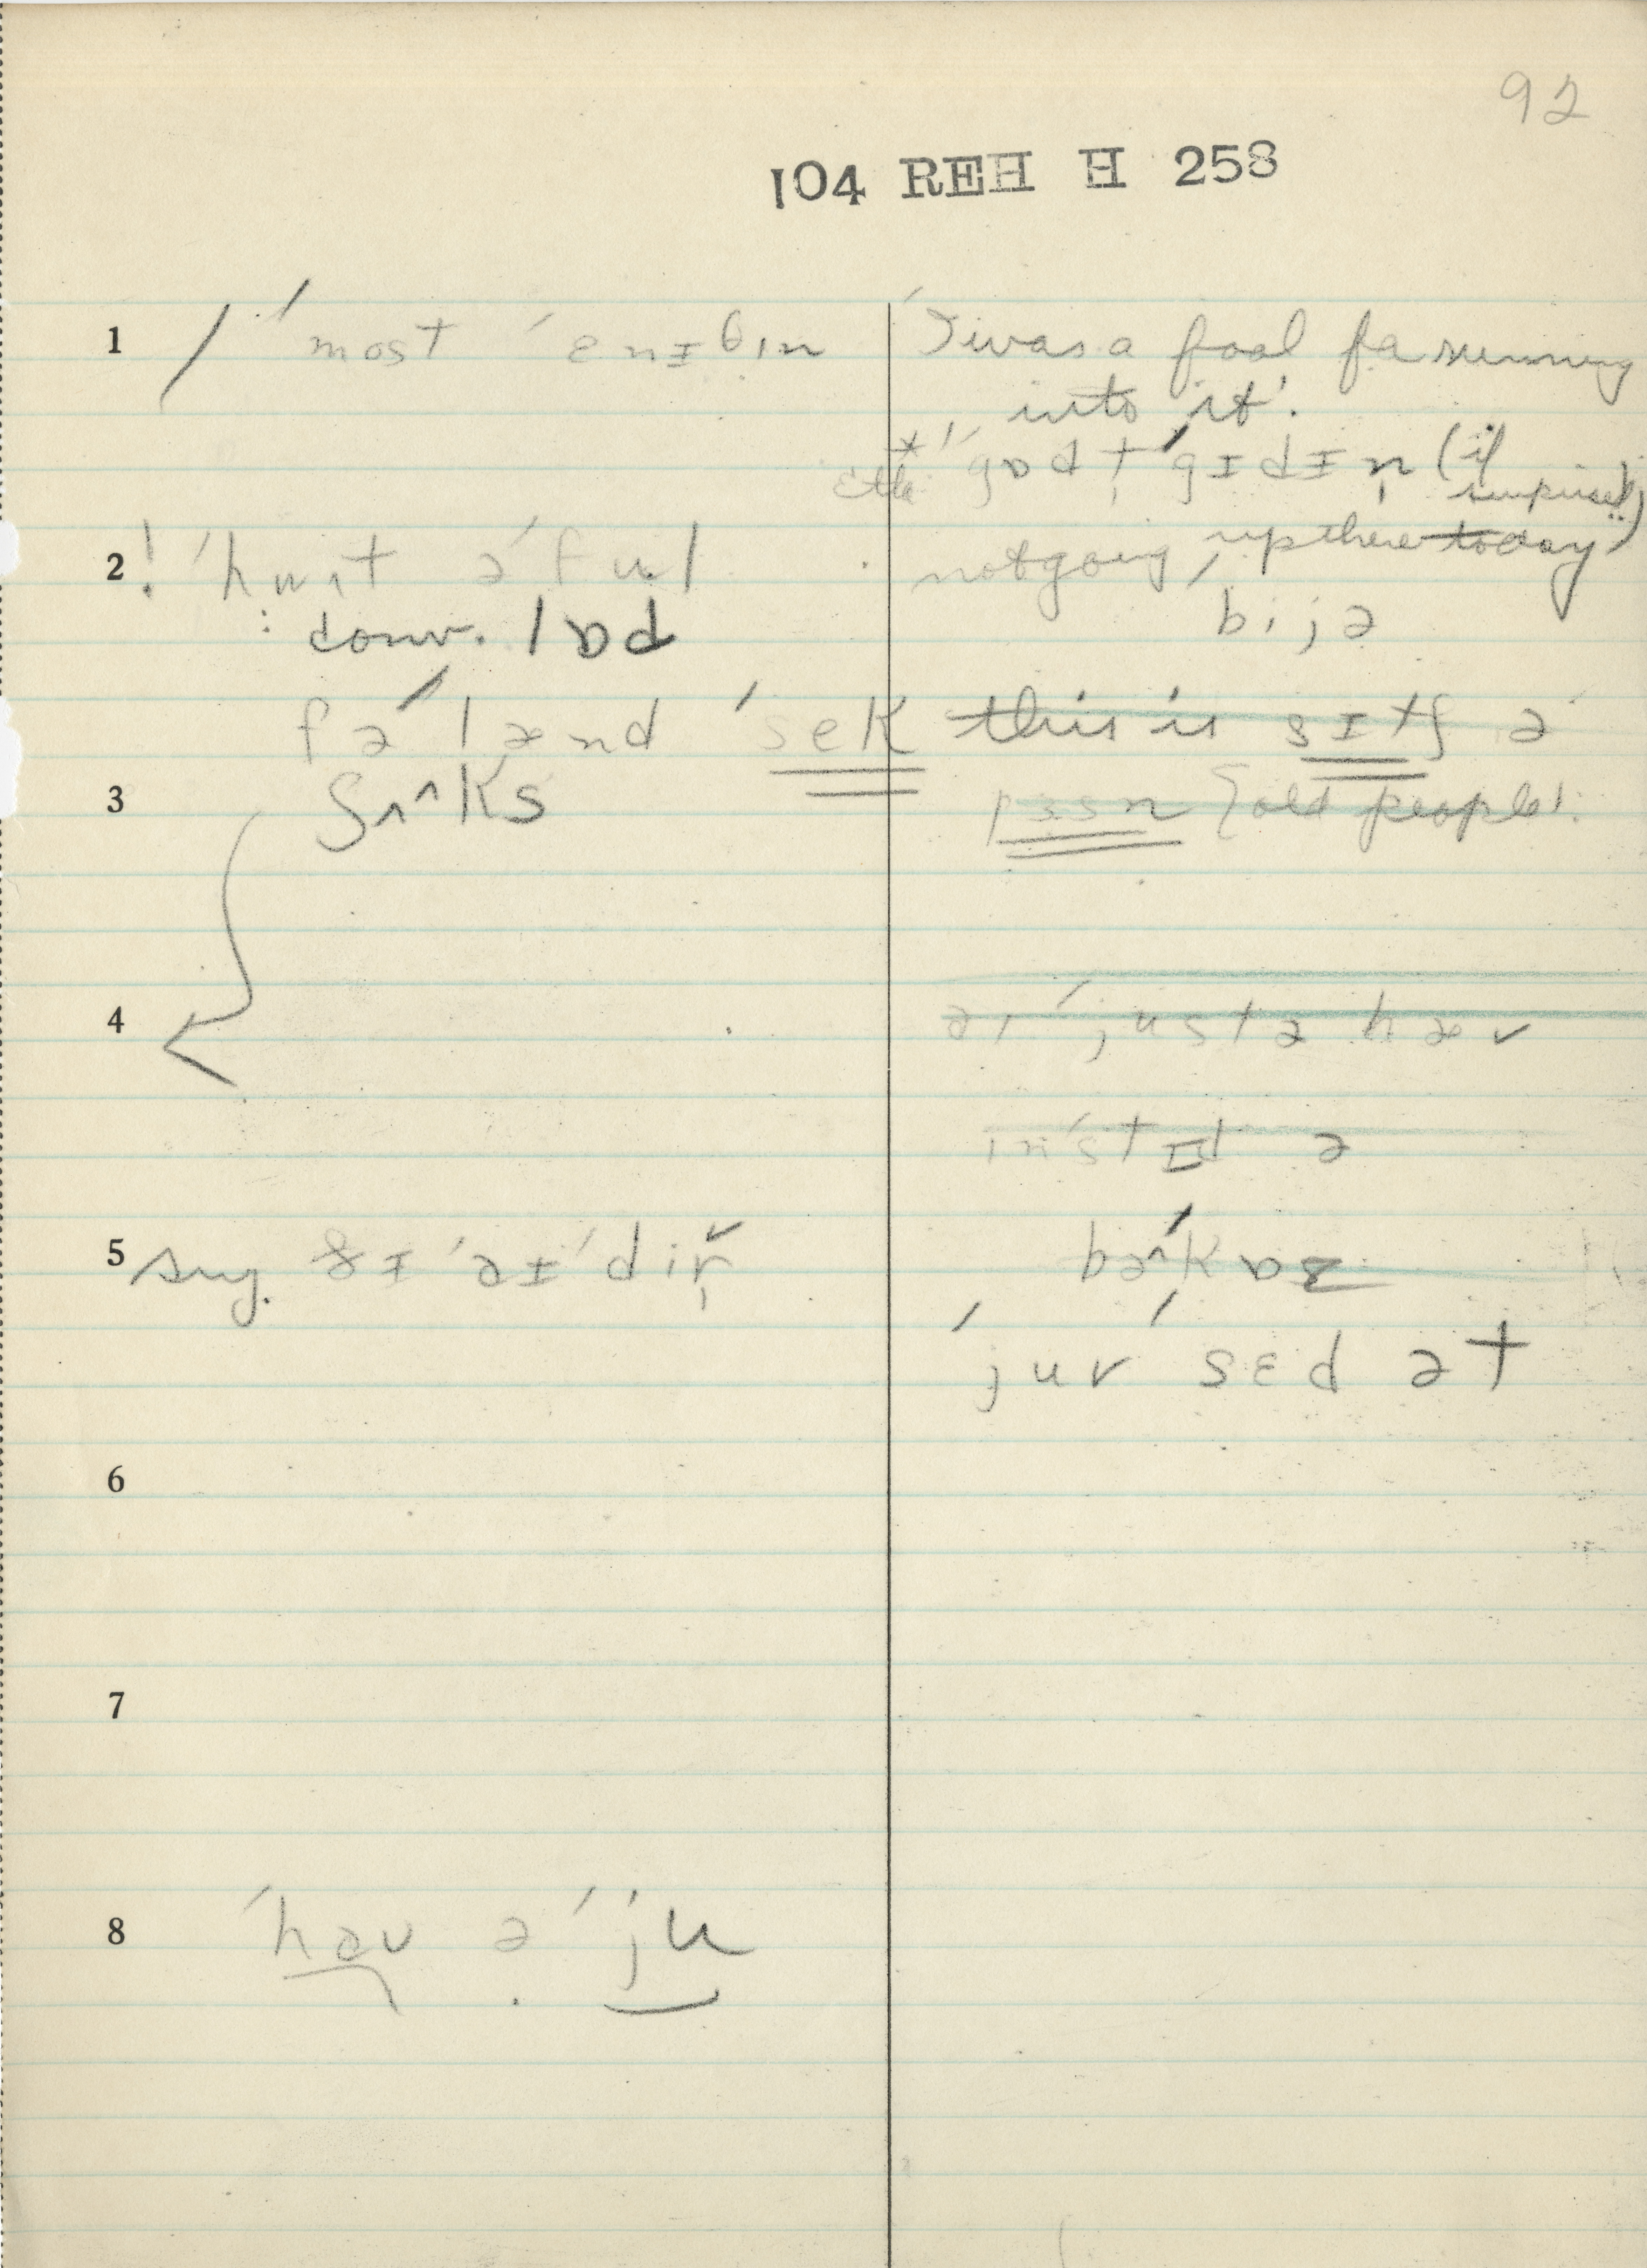 92
104 REH H 258
1 / ´most ´ɛnɪθɪn
'I was a fool fə running
into it'.
*´gɒd t̩ ´gɪdɪn̩ (if
surprised)
2 ! ´hwɪt ə´ful
not going, up there today)
: conv. lɒd
bijə
fə´lænd ´sek
this is sɪtʃ ə
3 ʃʌ^ks
pɜsn {old people'.
4
aɪ ´justə hæv
in´stɪd ə
5 sug. ðɪ ´əɪ´dɪr̩
bə´kɒz
´juv ´sɛd ət
6
7
8 ´həv ə ´ju